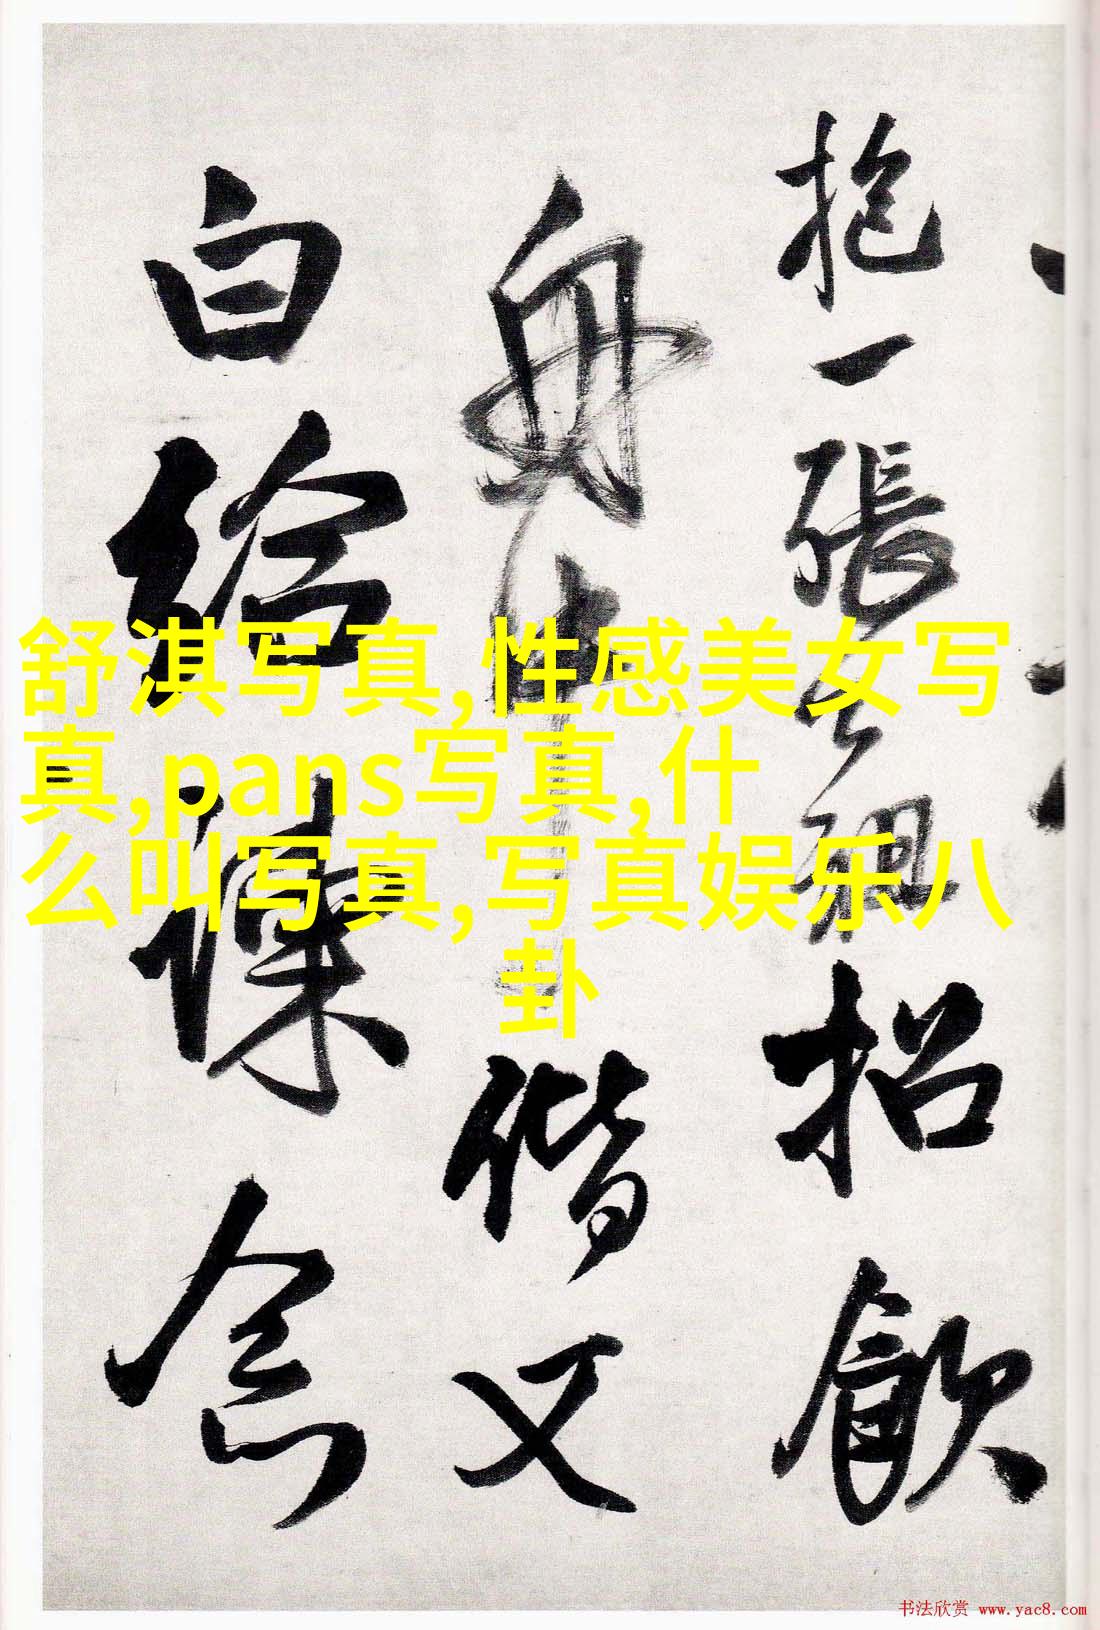 抱一張
招飲
舟中
偕又
白給諫念
舒淇写真,性感美女写
真,pans写真,什
么叫写真,写真娱乐八
卦
书法欣赏 www.yac8.com